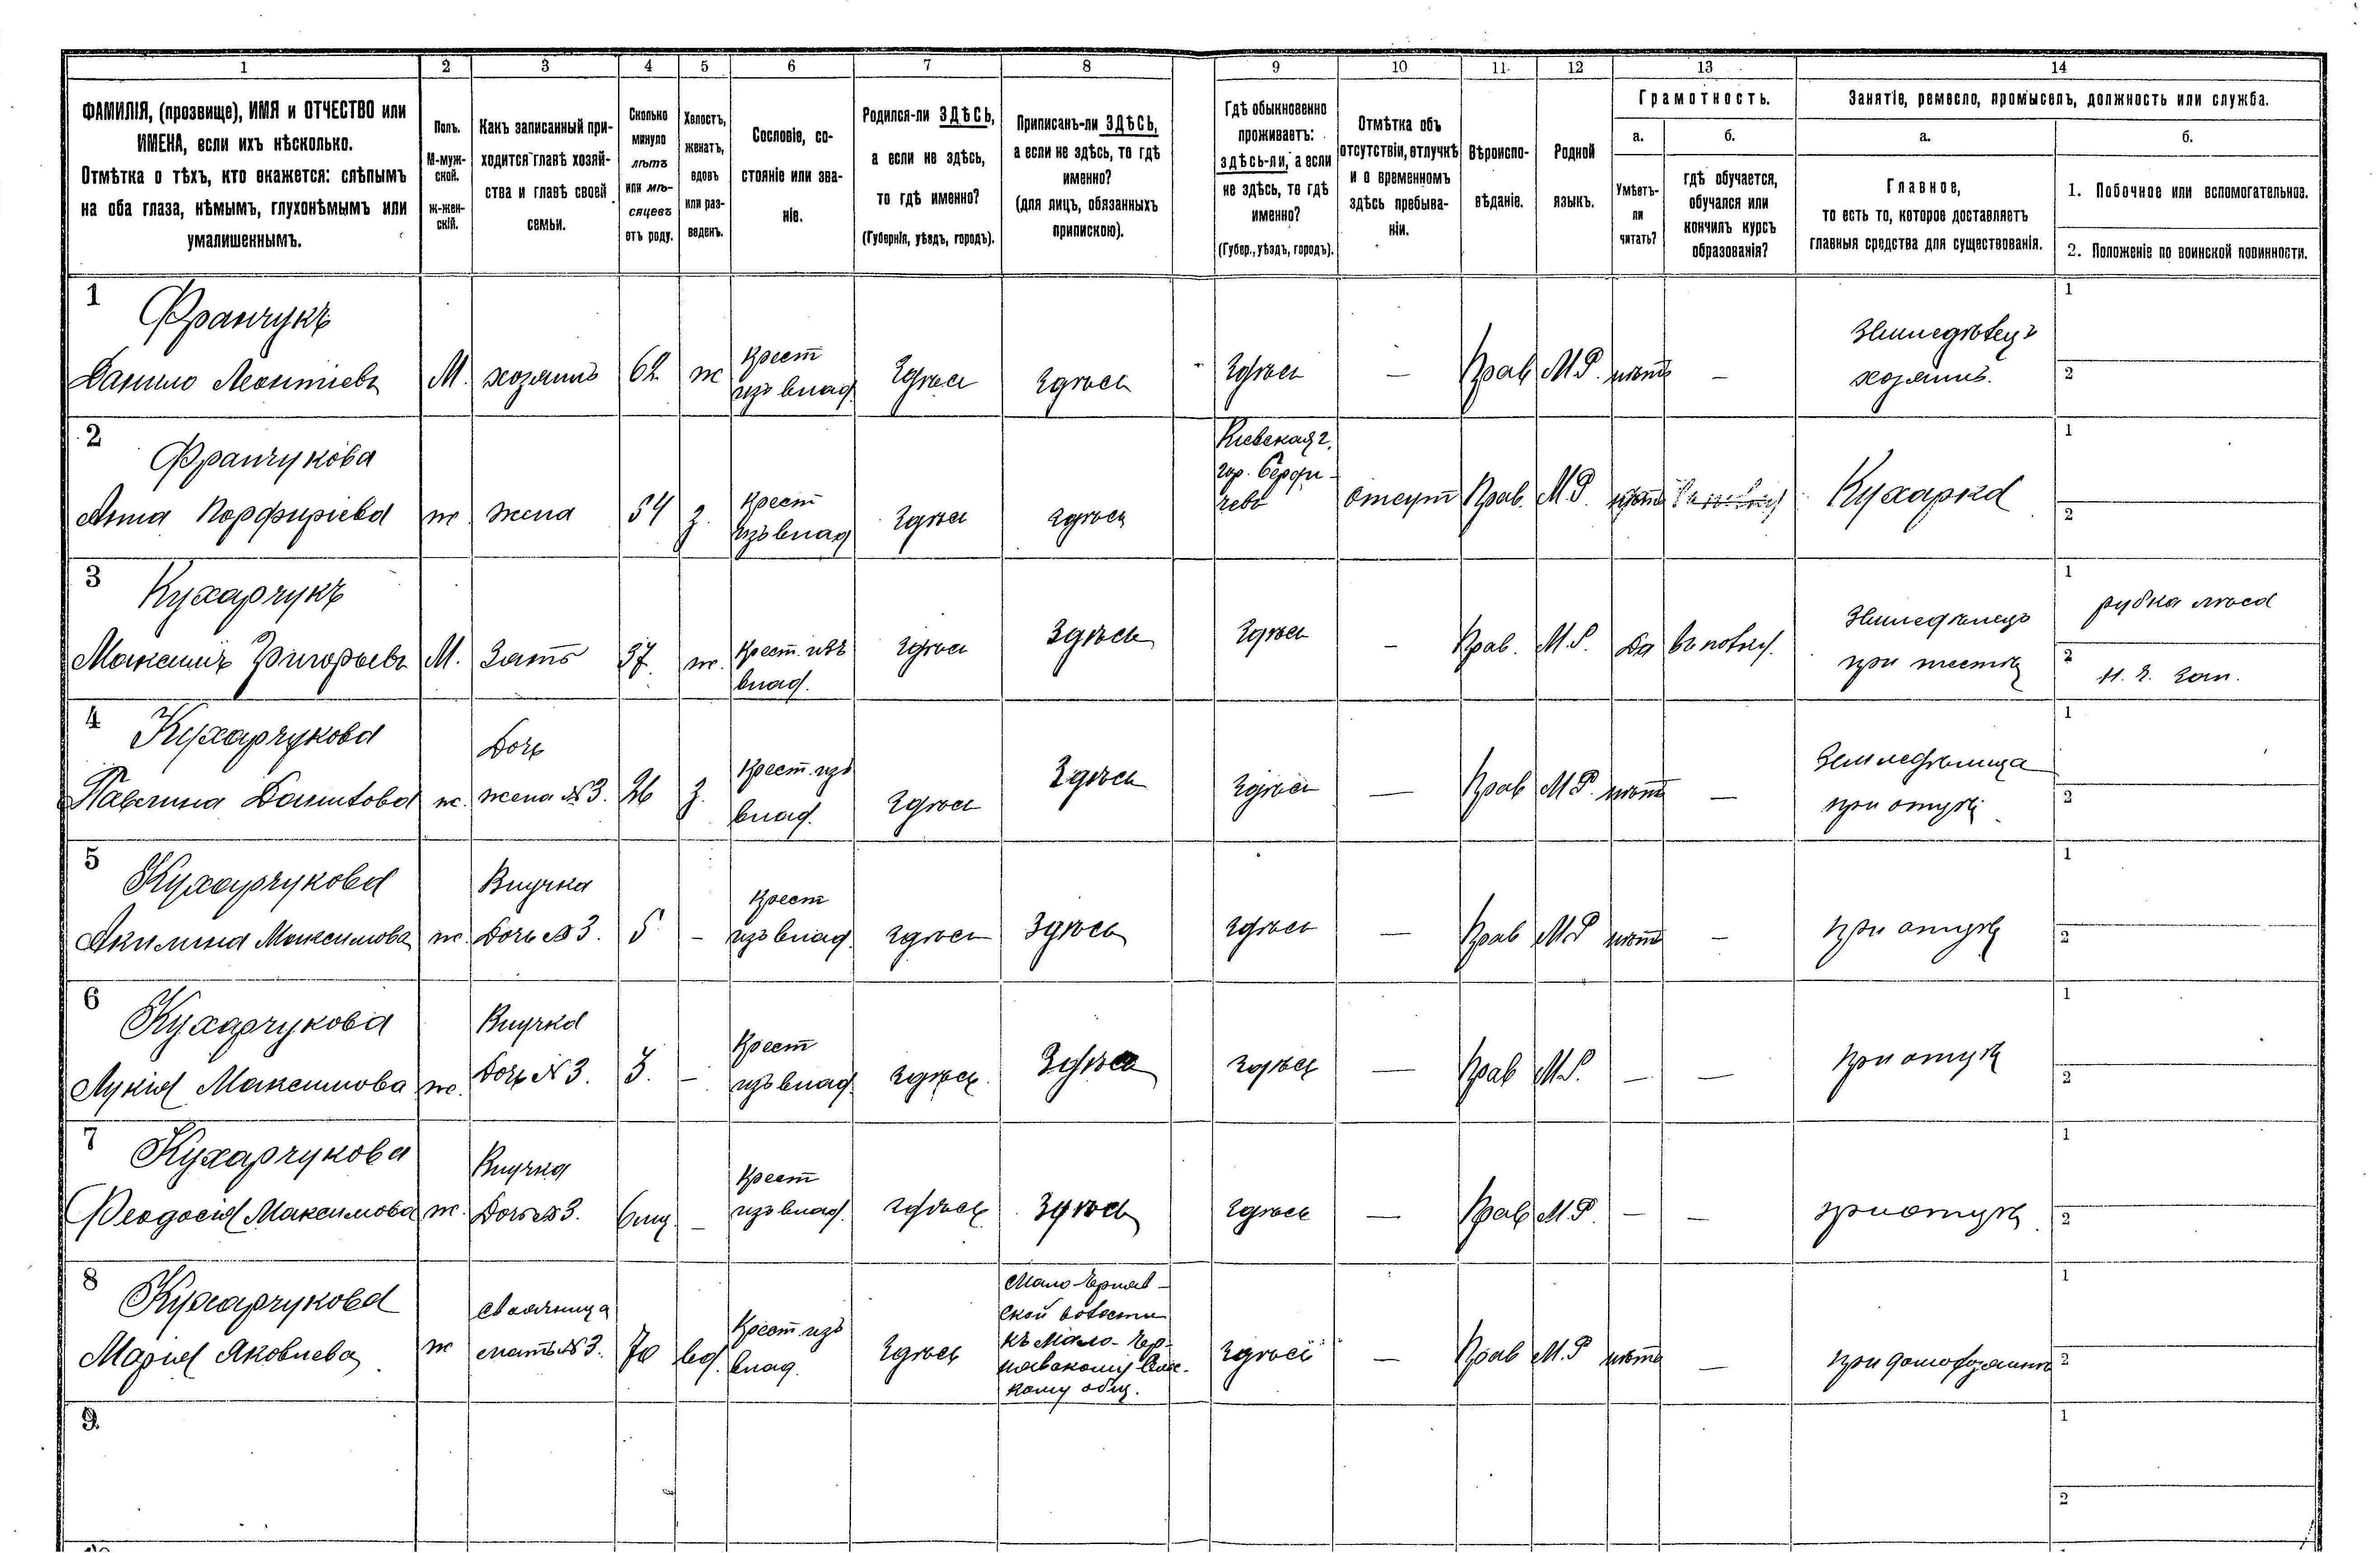 1 2 3 4 5 6 7 8 9 10 11 12 13 14
ФАМИЛІЯ, (прозвище), ИМЯ и ОТЧЕСТВО или
ИМЕНА, если ихъ нѣсколько.
Отмѣтка о тѣхъ, кто окажется: слѣпымъ
на оба глаза, нѣмымъ, глухонѣмымъ или
умалишеннымъ.
Полъ.
М-муж-
ской.
ж-жен-
скій.
Какъ записанный при-
ходится главѣ хозяй-
ства и главѣ своей
семьи.
Сколько
минуло
лѣтъ
или мѣ-
сяцевъ
отъ роду.
Холостъ,
женатъ,
вдовъ
или раз-
веденъ.
Сословіе, со-
стояніе или зва-
ніе.
Родился-ли ЗДѢСЬ,
а если не здѣсь,
то гдѣ именно?
(Губернія, уѣздъ, городъ).
Приписанъ-ли ЗДѢСЬ,
а если не здѣсь, то гдѣ
именно?
(для лицъ, обязанныхъ
припискою).
Гдѣ обыкновенно
проживаетъ:
здѣсь-ли, а если
не здѣсь, то гдѣ
именно?
(Губер., уѣздъ, городъ).
Отмѣтка объ
отсутствіи, отлучкѣ
и о временномъ
здѣсь пребыва-
ніи.
Вѣроиспо-
вѣданіе.
Родной
языкъ.
Грамотность.
а.
Умѣетъ-
ли
читать?
б.
гдѣ обучается,
обучался или
кончилъ курсъ
образованія?
Занятіе, ремесло, промыселъ, должность или служба.
а.
Главное,
то есть то, которое доставляетъ
главныя средства для существованія.
б.
1. Побочное или вспомогательное.
2. Положеніе по воинской повинности.
1 Франчукъ
Данило Леонтіевъ
М.
хозяинъ
62
ж
Крест
изъ влад.
Здѣсь
Здѣсь
Здѣсь
—
Прав
М.Р.
нѣтъ
—
Земледѣлецъ
хозяинъ.
1
2
2 Франчукова
Анна Порфиріева
ж
жена
54
з.
Крест
изъ влад
Здѣсь
Здѣсь
Кіевская г.
гор. Берди-
чевъ
отсут
Прав.
М.Р.
нѣтъ
Кухарка
1
2
3 Кухарчукъ
Максимъ Григорьевъ
М.
Зять
37
ж.
Крест. изъ
влад.
Здѣсь
Здѣсь
Здѣсь
—
Прав.
М.Р.
Да
Земледѣлецъ
при тестѣ
1 рубка лѣса
2
4 Кухарчукова
Павлина Данилова
ж.
Дочь
жена №3.
26
з.
Крест. изъ
влад.
Здѣсь
Здѣсь
Здѣсь
—
Прав
М.Р.
нѣтъ
—
Земледѣлица
при отцѣ
1
2
5 Кухарчукова
Акилина Максимова
ж.
Внучка
Дочь №3.
5
—
Крест
изъ влад.
Здѣсь
Здѣсь
Здѣсь
—
Прав
М.Р
нѣтъ
—
при отцѣ
1
2
6 Кухарчукова
Лукія Максимова
ж.
Внучка
Дочь №3.
3.
—
Крест
изъ влад.
Здѣсь
Здѣсь
Здѣсь
—
Прав
М.Р.
—
—
при отцѣ
1
2
7 Кухарчукова
Феодосія Максимова
ж.
Внучка
Дочь №3.
6 мц.
—
Крест
изъ влад.
Здѣсь
Здѣсь
Здѣсь
—
Прав
М.Р.
—
—
при отцѣ
1
2
8 Кухарчукова
Марія Яковлева
ж
своячница
мать №3.
70
вд.
Крест. изъ
влад.
Здѣсь
Мало-Черняв-
ской волости
къ Мало-Чер-
нявскому Сель-
кому общ.
Здѣсь
—
Прав
М.Р
нѣтъ
—
при домохозяинѣ
1
2
9.
1
2